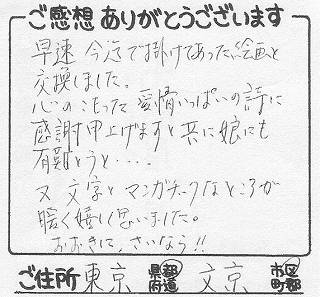 ご感想ありがとうございます
早速今迄で掛けてあった絵画と
交換しました。
心のこもった愛情いっぱいの詩に
感謝申上げますと共に娘にも
有難とうと・・・・。
又文字とマンガチックなところが
暖く嬉しく思いました。
おおきに、さいなう!!
ご住所 東京 都道府県 文京 市区町郡